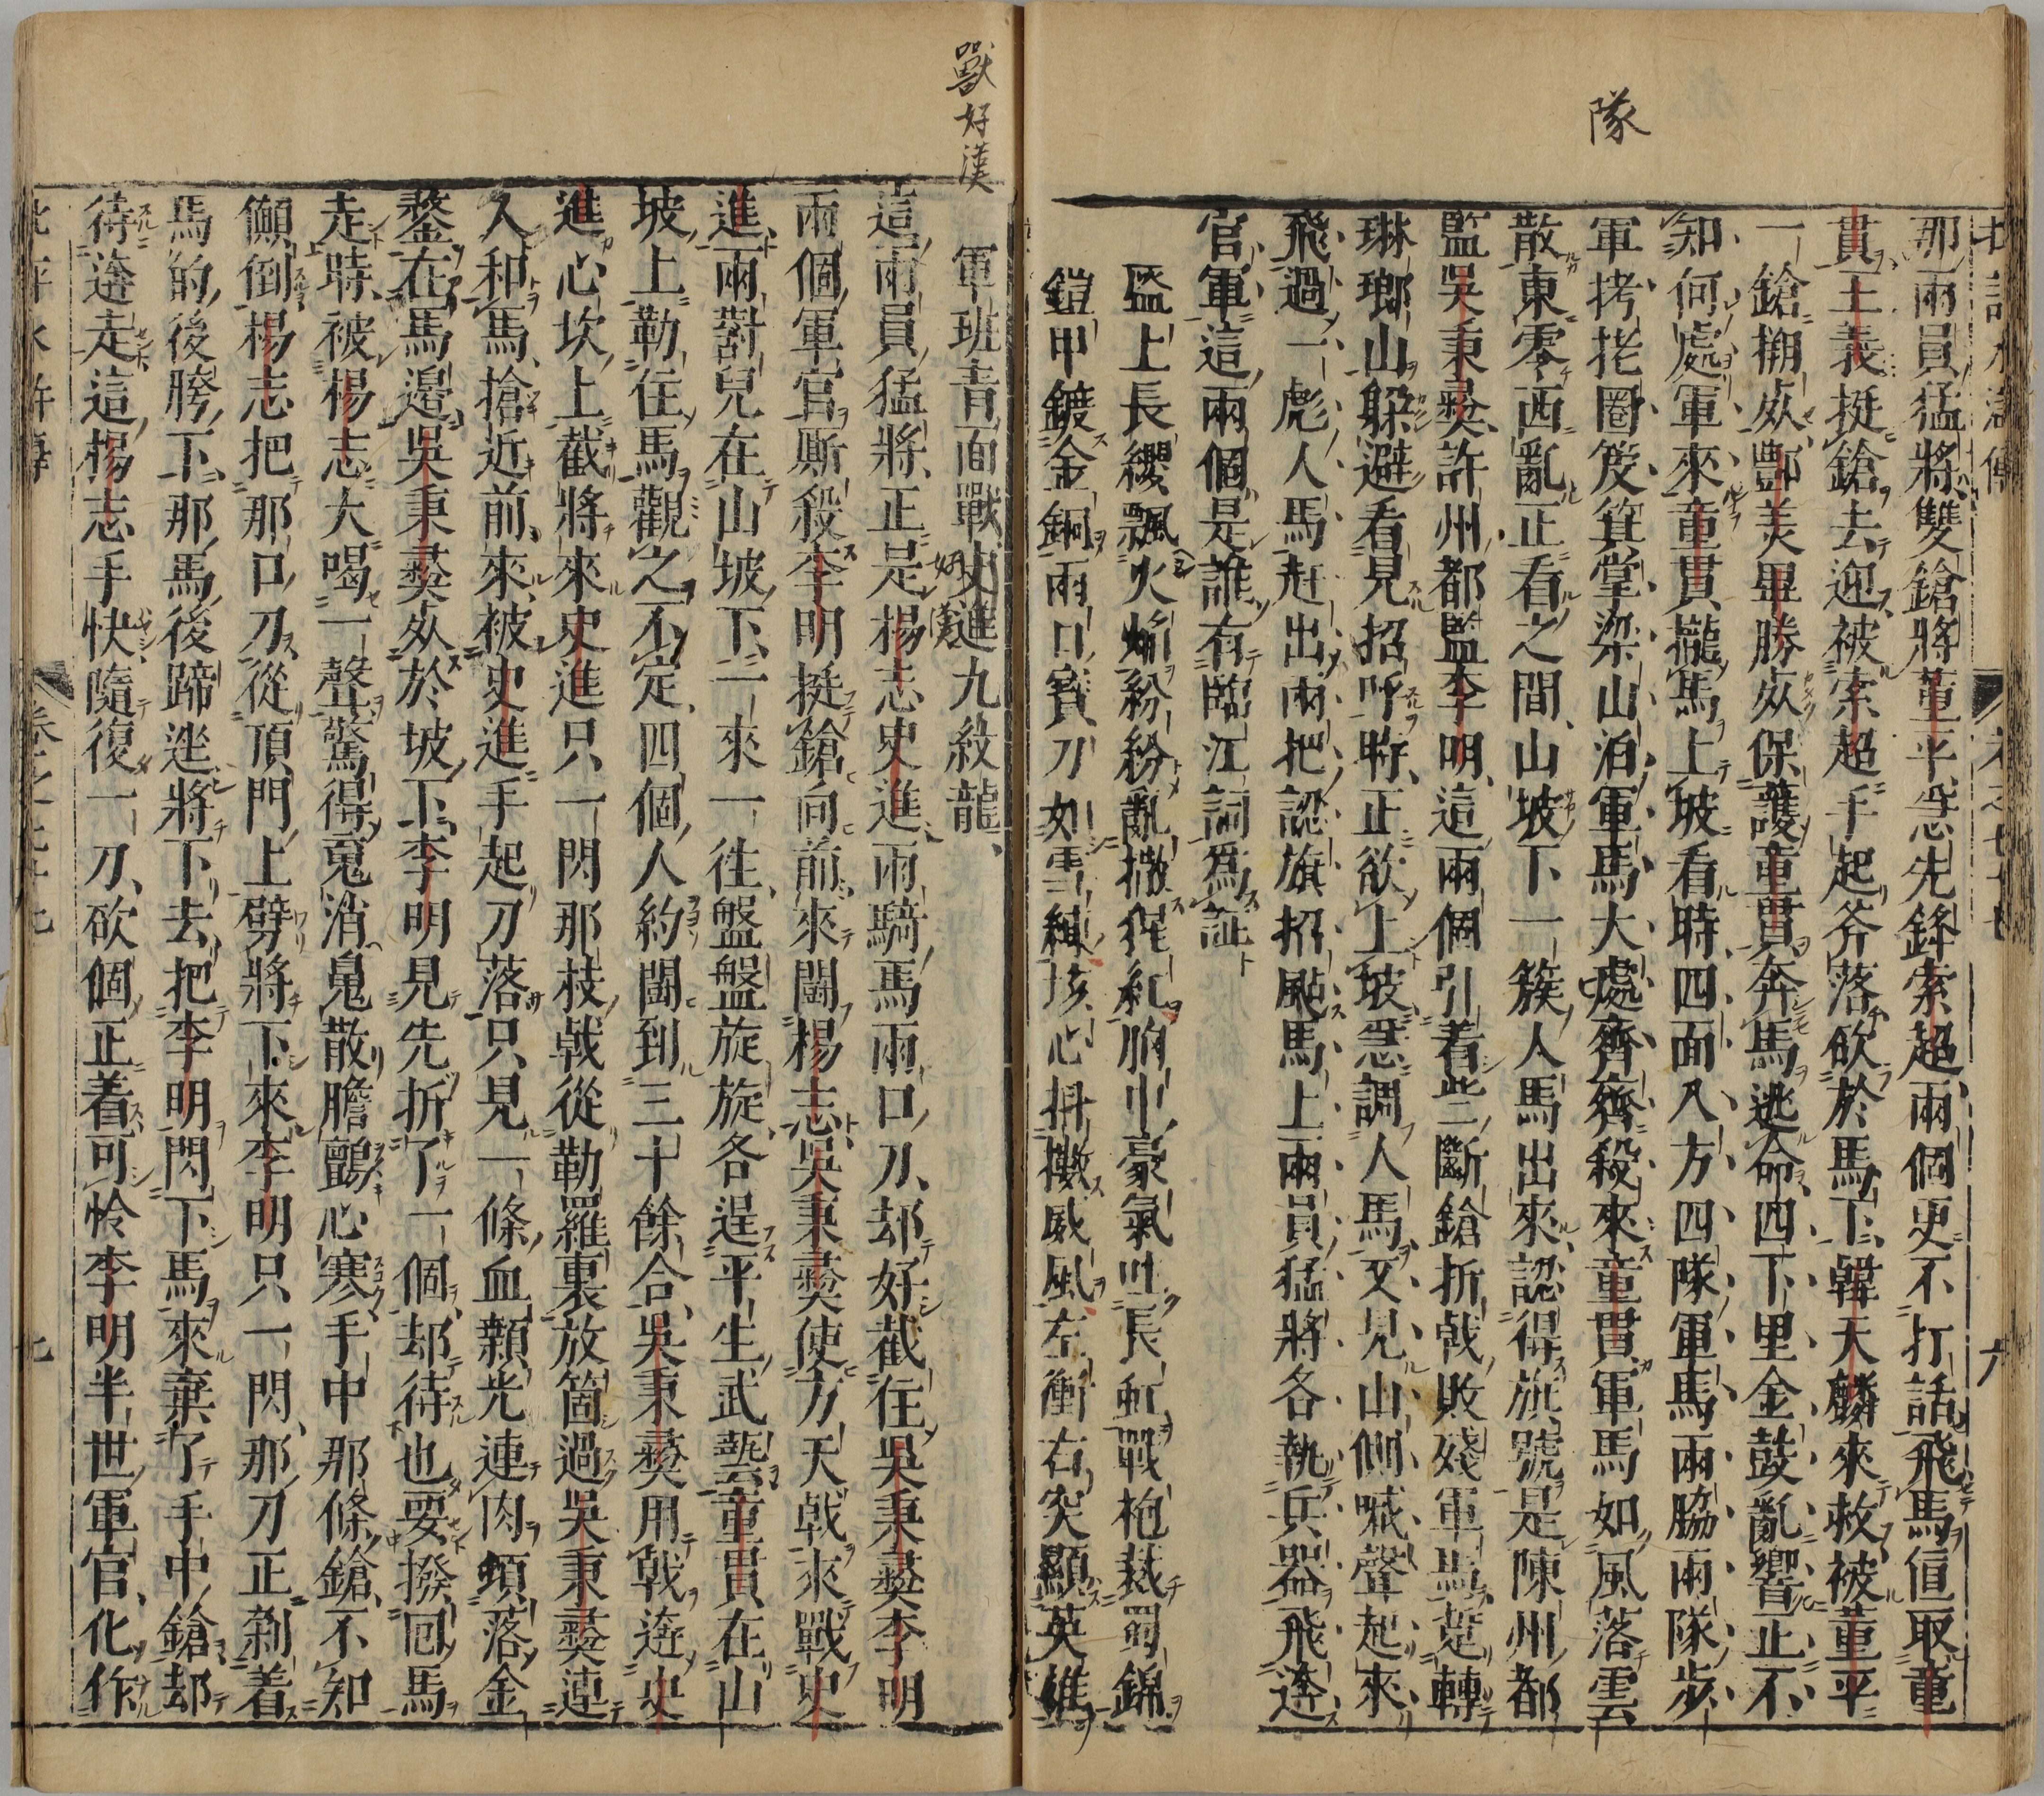 隊
那兩員猛將雙鎗將董平急先鋒索超兩個更不打話飛馬値取童
貫王義挺鎗去迎被索超手起斧落砍於馬下韓天麟來救被董平
一鎗搠死酆美畢勝死保護童貫奔馬逃命四下里金鼓亂響正不
知何處軍來童貫攏馬上坡看時四面八方四隊軍馬兩脇兩隊步
軍拷栳圈簸箕掌梁山泊軍馬大處齊齊殺來童貫軍馬如風落雲
散東零西亂正看之間山坡下一簇人馬出來認得旗號是陳州都
監吳秉彝許州都監李明這兩個引着些斷鎗折戟敗殘軍馬踅轉
琳瑯山躲避看見招呼時正欲上坡急調人馬又見山側喊聲起來
飛過一彪人馬赶出兩把認旗招颭馬上兩員猛將各執兵器飛迯
官軍這兩個是誰有臨江詞爲証
盔上長纓飄火焰紛紛亂撒猩紅胸中豪氣吐長虹戰袍裁蜀錦
鎧甲鍍金銅兩口寳刀如雪練垓心抖擻威風左衝右突顯英雄
獸好漢
軍班青面獸史進九紋龍
這兩員猛將正是楊志史進兩騎馬兩口刀却好截住吳秉彝李明
兩個軍官厮殺李明挺鎗向前來鬪楊志吳秉彝使方天戟來戰史
進兩對兒在山坡下一來一徃盤盤旋旋各逞平生武藝童貫在山
坡上勒住馬觀之不定四個人約鬪到三十餘合吳秉彝用戟迯史
進心坎上截將來史進只一閃那枝戟從勒羅裏放箇過吳秉彝連
人和馬搶近前來被史進手起刀落只見一條血顙光連肉頓落金
鍪在馬邉吳秉彝死於坡下李明見先折了一個却待也要撥囘馬
走時被楊志大喝一聲驚得䰟消魄散膽顫心寒手中那條鎗不知
顛倒楊志把那口刀從頂門上劈將下來李明只一閃那刀正剁着
馬的後胯下那馬後蹄迯將下去把李明閃下馬來棄了手中鎗却
待迯走這楊志手快隨復一刀砍個正着可怜李明半世軍官化作